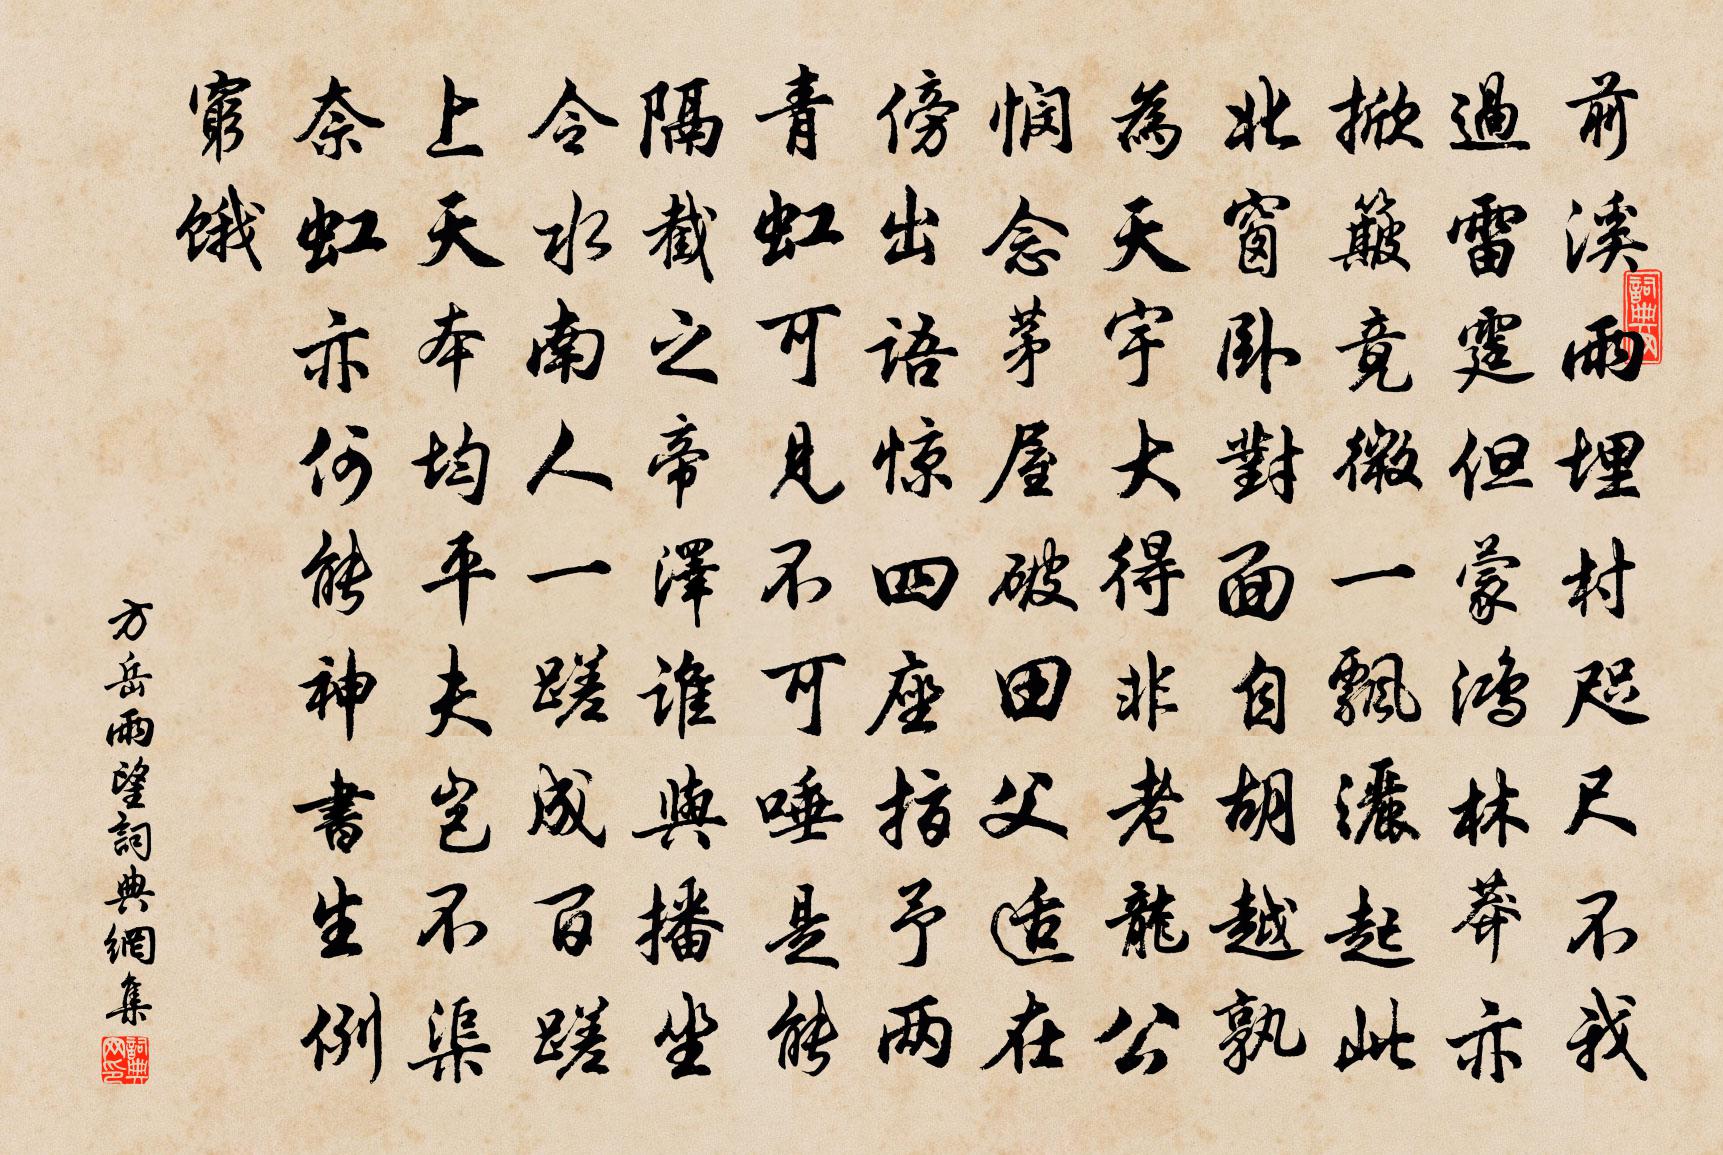 前溪雨埋村咫尺不我
過雷霆但蒙鴻林莽亦
掀簸竟微一飄灑起此
北窗卧對面自胡越孰
為天宇大得非老龍公
悯念茅屋破田父适在
傍出語惊四座指予两
青虹可見不可唾是能
隔截之帝澤誰與播坐
令水南人一蹉成百蹉
上天本均平夫豈不渠
奈虹亦何能神書生例
窮餓
方岳雨望詞典網集
詞典网
詞典网印